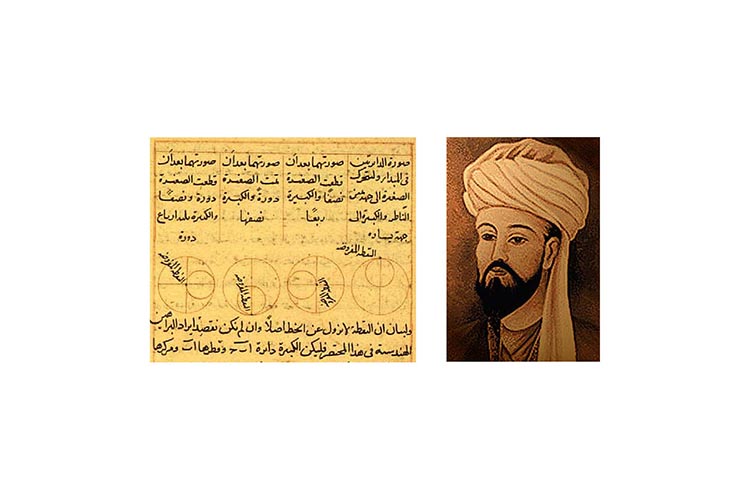 صورة الدايرتين
فى المبدا وليتحرك
الصغيرة الى جهة يمين
الناظر والكبيرة الى
جهة يساره
صورتهما بعد ان
قطعت الصغيرة
نصفًا والكبيرة
ربعًا
صورتهما بعد ان
تمت الصغيرة
دورةً والكبيرة
نصفها
صورتهما بعد ان
قطعت الصغيرة
دورة ونصفًا
والكبيرة ارباع
دورة
النقطة المفروضة
النقطة المفروضة
النقطة المفروضة
ولبيان ان النقطة لا تزول عن الخط اصلًا وان لم نكن نقصد ايراد البراهين
الهندسية فى هذا المختصر فليكن الكبيرة دائرة وقطرها ومركزها